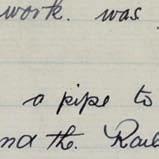 work. was
a pipe to
and the. Rail